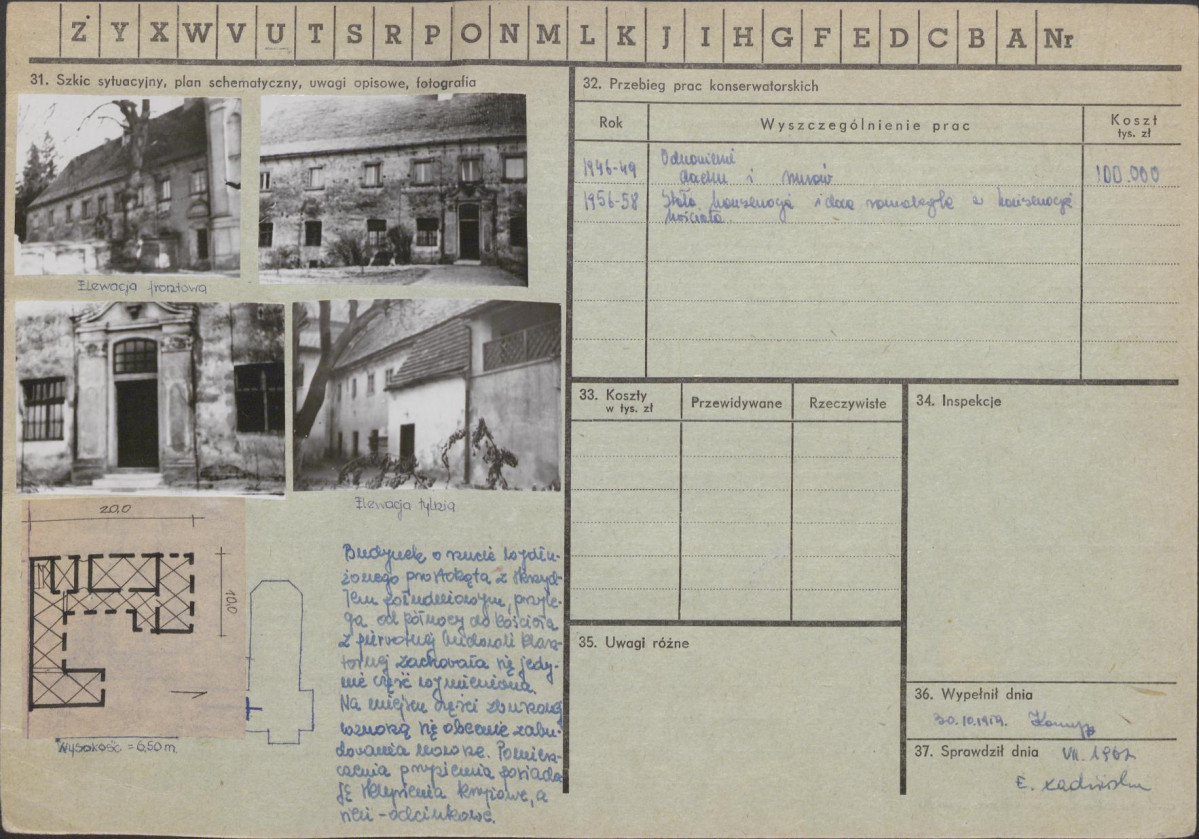 Z Y X W V U T S R P O N M L K J I H G F E D C B A Nr
31. Szkic sytuacyjny, plan schematyczny, uwagi opisowe, fotografia
Elewacja frontowa
Elewacja tylnia
20,0
10,0
Wysokość = 6,50 m.
Budynek o rzucie wydłu-
żonego prostokąta z skrzyd-
łem południowym, przyle-
ga od północy do kościoła
z pierwotnej budowli klasz-
tornej zachowała się jedy-
nie część wymieniona.
Na miejscu części zburzonej
wznoszą się obecnie zabu-
dowania nowsze. Pomiesz-
czenia przyziemia posiada-
ją sklepienia krzyżowe, a
odcinkowe.
32. Przebieg prac konserwatorskich
Rok
Wyszczególnienie prac
Koszt
tys. zł
1946-49
Odnowienie
dachu i murów
100.000
1956-58
Stała i
kościoła
33. Koszty
w tys. zł
Przewidywane
Rzeczywiste
34. Inspekcje
35. Uwagi różne
36. Wypełnił dnia
30.10.1959.
37. Sprawdził dnia
VII. 1962
E.